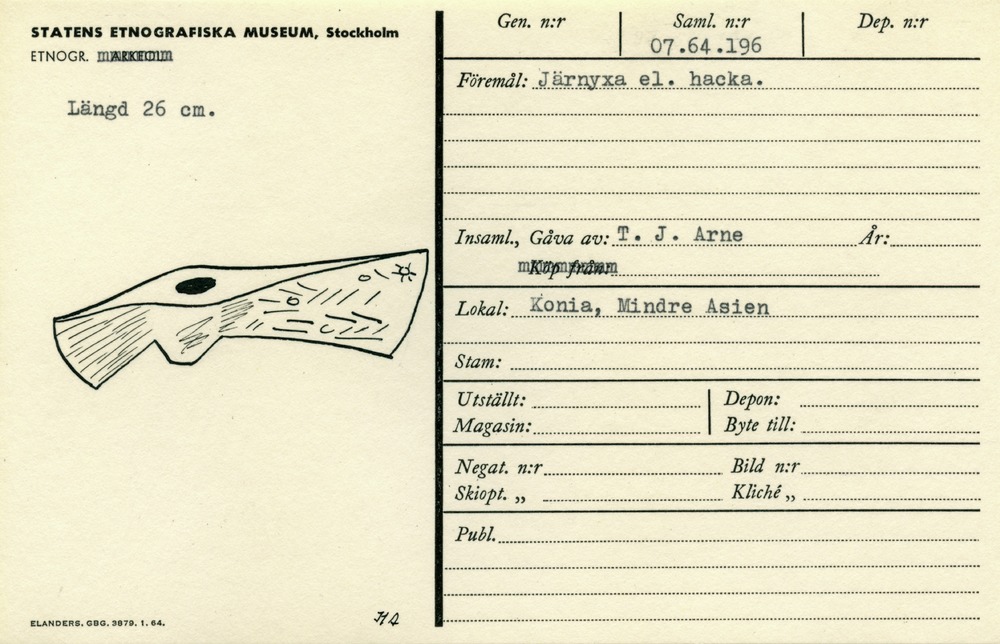 STATENS ETNOGRAFISKA MUSEUM, Stockholm
ETNOGR. ARKEOL.
Längd 26 cm.
ELANDERS. GBG. 3879. 1. 64.
Gen. n:r Saml. n:r Dep. n:r
07.64.196
Föremål: Järnyxa el. hacka.
Insaml., Gåva av: T. J. Arne År:
Köp från:
Lokal: Konia, Mindre Asien
Stam:
Utställt: Depon:
Magasin: Byte till:
Negat. n:r Bild n:r
Skiopt. „ Kliché „
Publ.